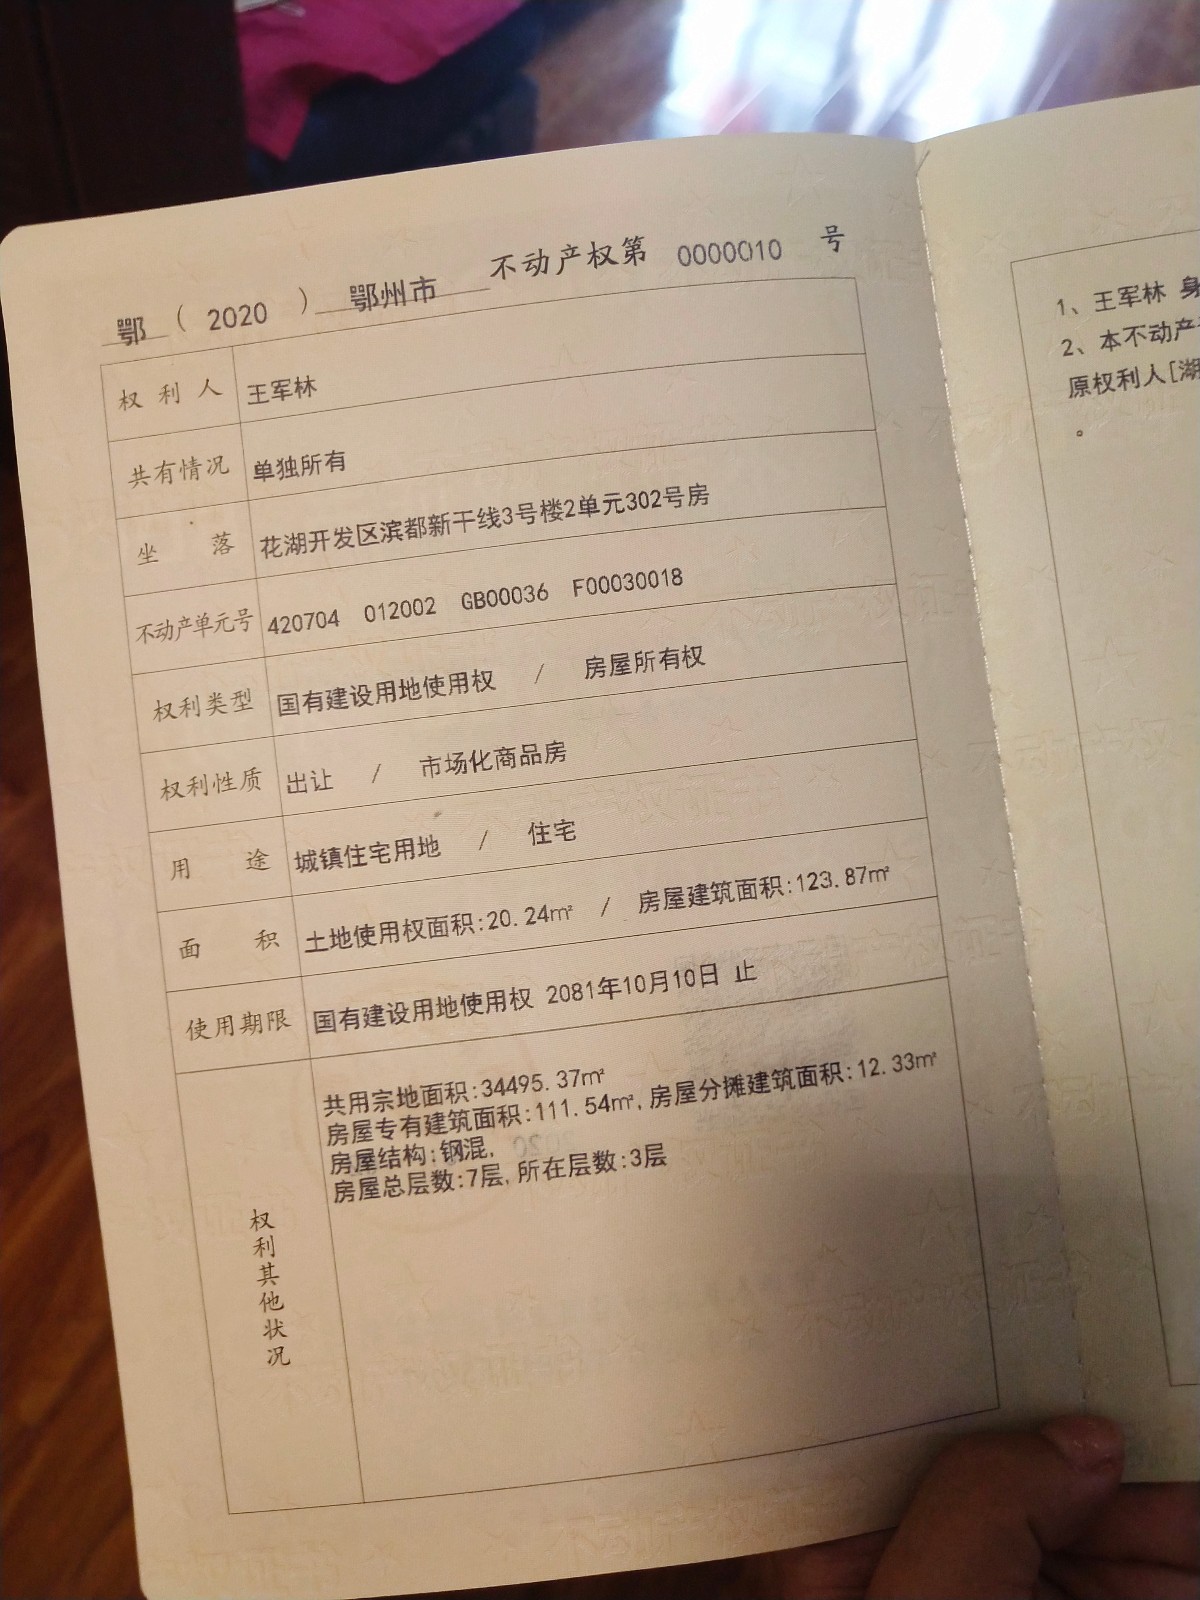 鄂（2020）鄂州市 不动产权第 0000010 号
权利人 王军林
共有情况 单独所有
坐落 花湖开发区滨都新干线3号楼2单元302号房
不动产单元号 420704 012002 GB00036 F00030018
权利类型 国有建设用地使用权 / 房屋所有权
权利性质 出让 / 市场化商品房
用途 城镇住宅用地 / 住宅
面积 土地使用权面积:20.24㎡ / 房屋建筑面积:123.87㎡
使用期限 国有建设用地使用权 2081年10月10日 止
权利其他状况
共用宗地面积:34495.37㎡
房屋专有建筑面积:111.54㎡,房屋分摊建筑面积:12.33㎡
房屋结构:钢混,
房屋总层数:7层,所在层数:3层
1、王军林 身
2、本不动产
原权利人[湖
。